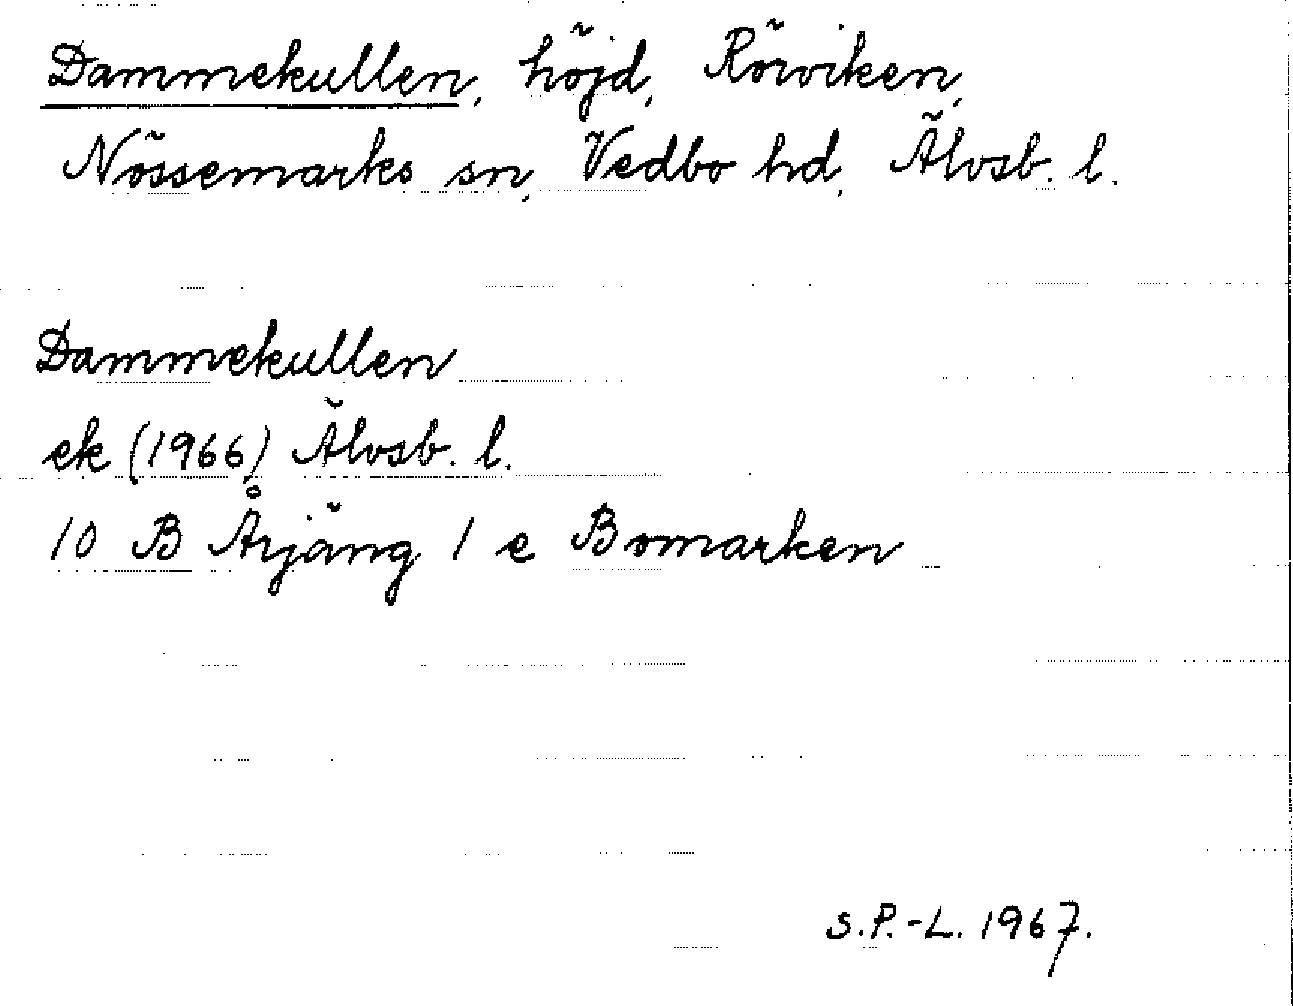 Dammekullen, höjd, Rörviken,
Nössemarks sn, Vedbo hd, Älvsb. l.
Dammekullen
ek (1966) Älvsb. l.
10 B Årjäng 1 e Bomarken
S.P.-L. 1967.